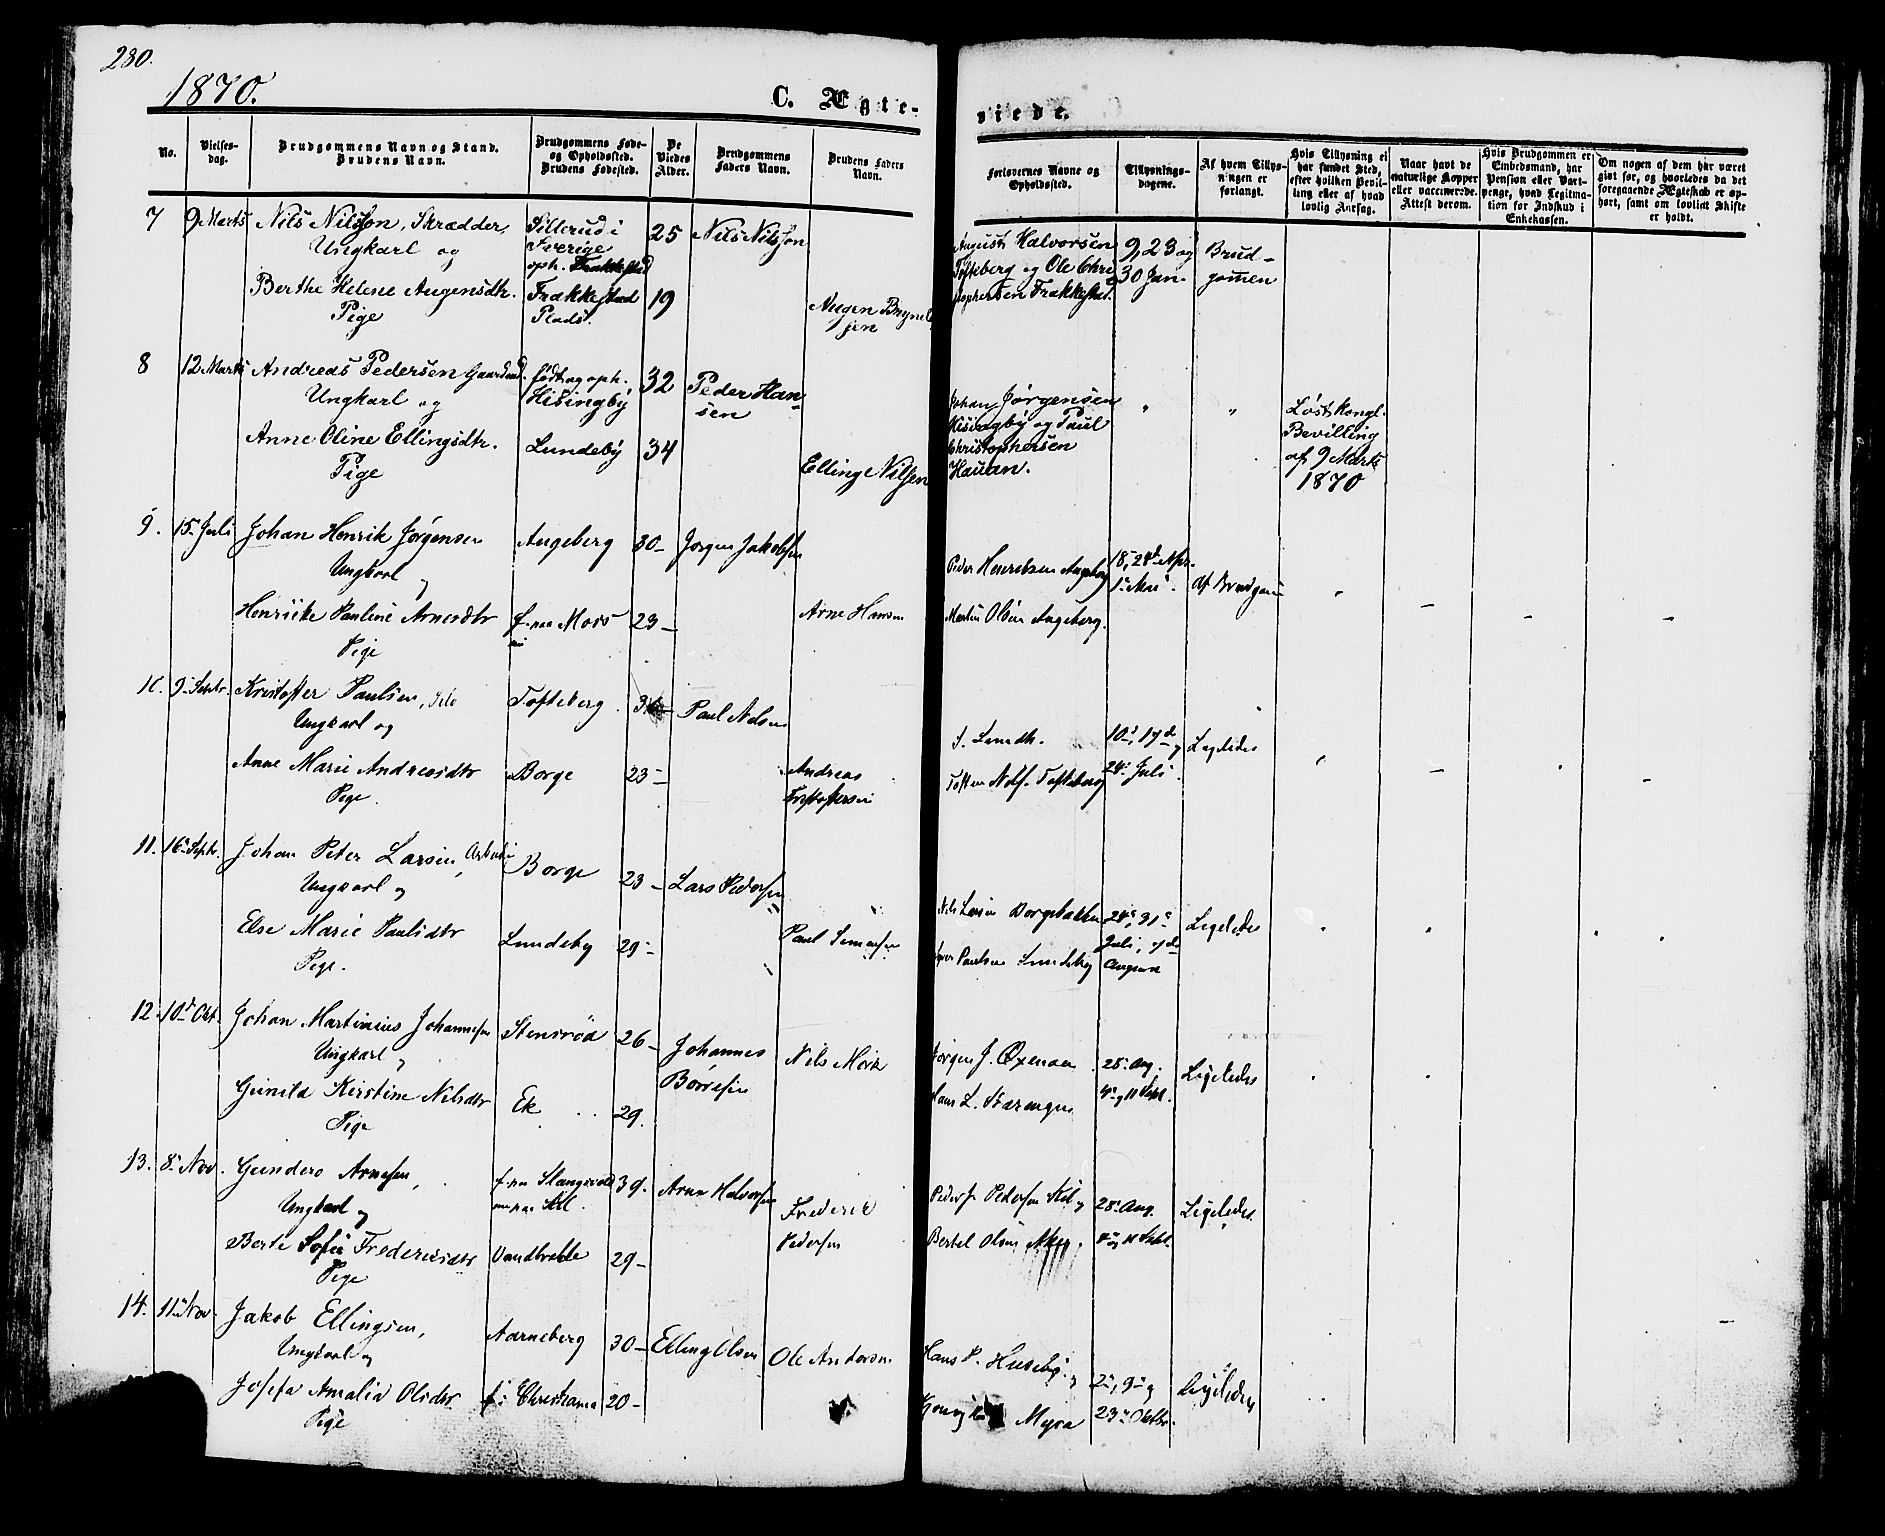 230.
1870.
C. Ægte-
viede.
No.
Vielses-
dag.
Brudgommens Navn og Stand.
Brudens Navn.
Brudgommens Føde-
og Opholdssted.
Brudens Fødested.
De
Viedes
Alder.
Brudgommens
Faders Navn.
Brudens Faders
Navn.
Forlovernes Navne og
Opholdssted.
Tillysnings-
dagene.
Af hvem Tillys-
ningen er
forlangt.
Hvis Tillysning ei
har fundet Sted,
efter hvilken Bevil-
ling eller af hvad
lovlig Aarsag.
Naar havt de
naturlige Kopper
eller vaccinerede.
Attest derom.
Hvis Brudgommen er
Embedsmand, har
Pension eller Vart-
penge, hvad Legitima-
tion for Indskud i
Enkekassen.
Om nogen af dem har været
gift før, og hvorledes da det
foregaaende Ægteskab er op-
hørt, samt om lovligt Skifte
er holdt.
7 9 Marts Nils Nilsson, Skrædder,
Ungkarl og
Sillerud i
Sverige
oph. Frakkestad
25 Nils Nilsson
Berthe Helene Augensdtr.
Pige
Frakkestad
Plads.
19
Augen
August Halvorsen
Tofteberg og Ole Chri
stophersen Frakkestad.
9, 23 og
30 Jan.
Brud-
gommen
8 12 Marts Andreas Pedersen
Ungkarl og
født og oph.
Hisingby
32 Peder Han-
sen
Anne Oline Ellingsdtr.
Pige
Lundeby 34
Elling Nilsen
Johan Jørgensen
Hisingby og Paul
Christophersen
Hauan.
" "
Løst kongl.
Bevilling
af 9 Marts
1870
9. 15 Juli Johan Henrik Jørgensen
Ungkarl og
Augeberg 30 – Jørgen Jakobsen
Henrikke Pauline Arnesdtr
Pige
23 –
Arne Hansen
Peder Henriksen Augeberg
Martin Olsen Augeberg.
1ste Mai.
10. 9 Septr. Kristoffer Paulsen,
Ungkarl og
Tofteberg
Paul Nilsen
Anne Marie Andreasdtr
Pige.
Borge 23 –
Andreas
Kristoffersen
Tofteberg
24 Juli.
Ligeledes
11. 16 Septr. Johan Peter Larsen,
Ungkarl og
Borge 23 – Lars Pedersen
Else Marie Paulsdtr
Pige.
Lundeby 29 –
Paul Simensen
Nils Larsen Borgebakken
Paulsen Lundeby
Juli, 7de
August
Ligeledes
12. 10 Okt. Johan Martinius Johannesen
Ungkarl og
Stensrød 26 –
Johannes
Børresen
Gunild Kirstine Nilsdtr
Pige
Ek 29.
Nils Mork
Jørgen J.
Hans L.
28 Aug.
4 og 11 Sept.
Ligeledes
13. 8 Nov. Gundero Arnesen,
Ungkarl og
39. Arne Halvorsen
Berte Sofie Frederiksdtr
Pige
29 –
Frederik
Pedersen
Peder Pedersen
Bertel Olsen
28 Aug.
4 og 11 Sept.
Ligeledes
14. 11 Nov. Jakob Ellingsen,
Ungkarl og
Aarneberg 30 – Elling Olsen
Josefa Amalia Olsdtr
Pige
f. i Christiania 20 –
Ole Andersen
Hans P. Huseby
Myra
2, 9 og
23 Oktbr.
Ligeledes